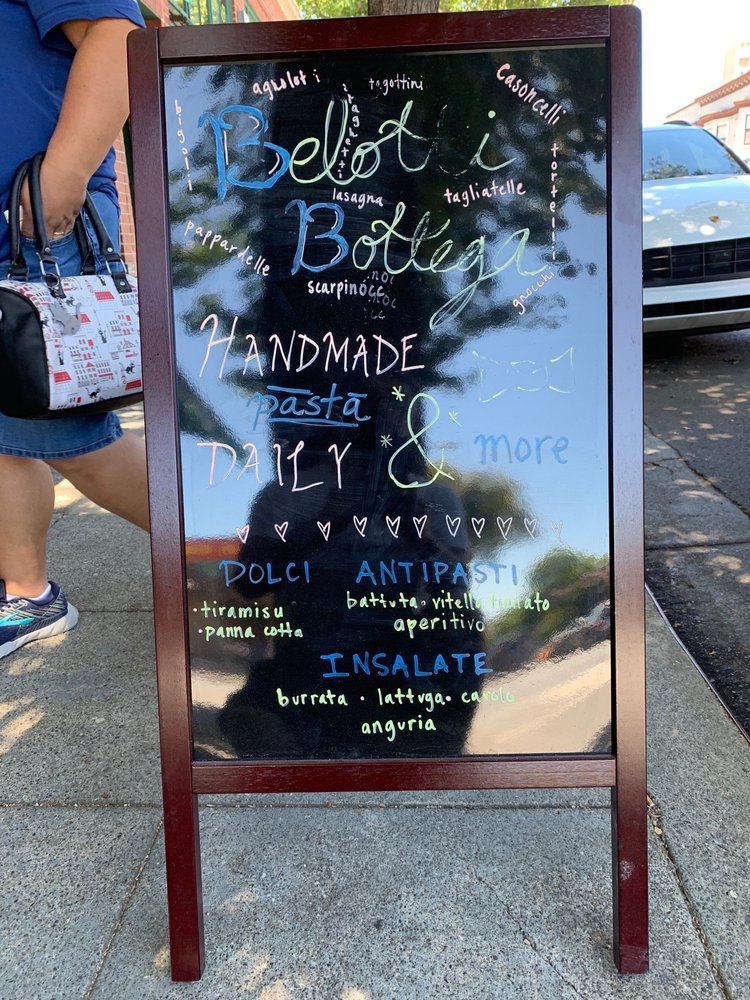 agnoloti
tagottini
casoncelli
bigoli
Belotti
spaghetti
tortelli
lasagna
tagliatelle
pappardelle
Bottega
scarpinocc
gnocchi
HANDMADE
pasta
DAILY & more
DOLCI ANTIPASTI
•tiramisu
•panna cotta
battuta • vitello tonnato
aperitivo
INSALATE
burrata • lattuga • cavolo
anguria